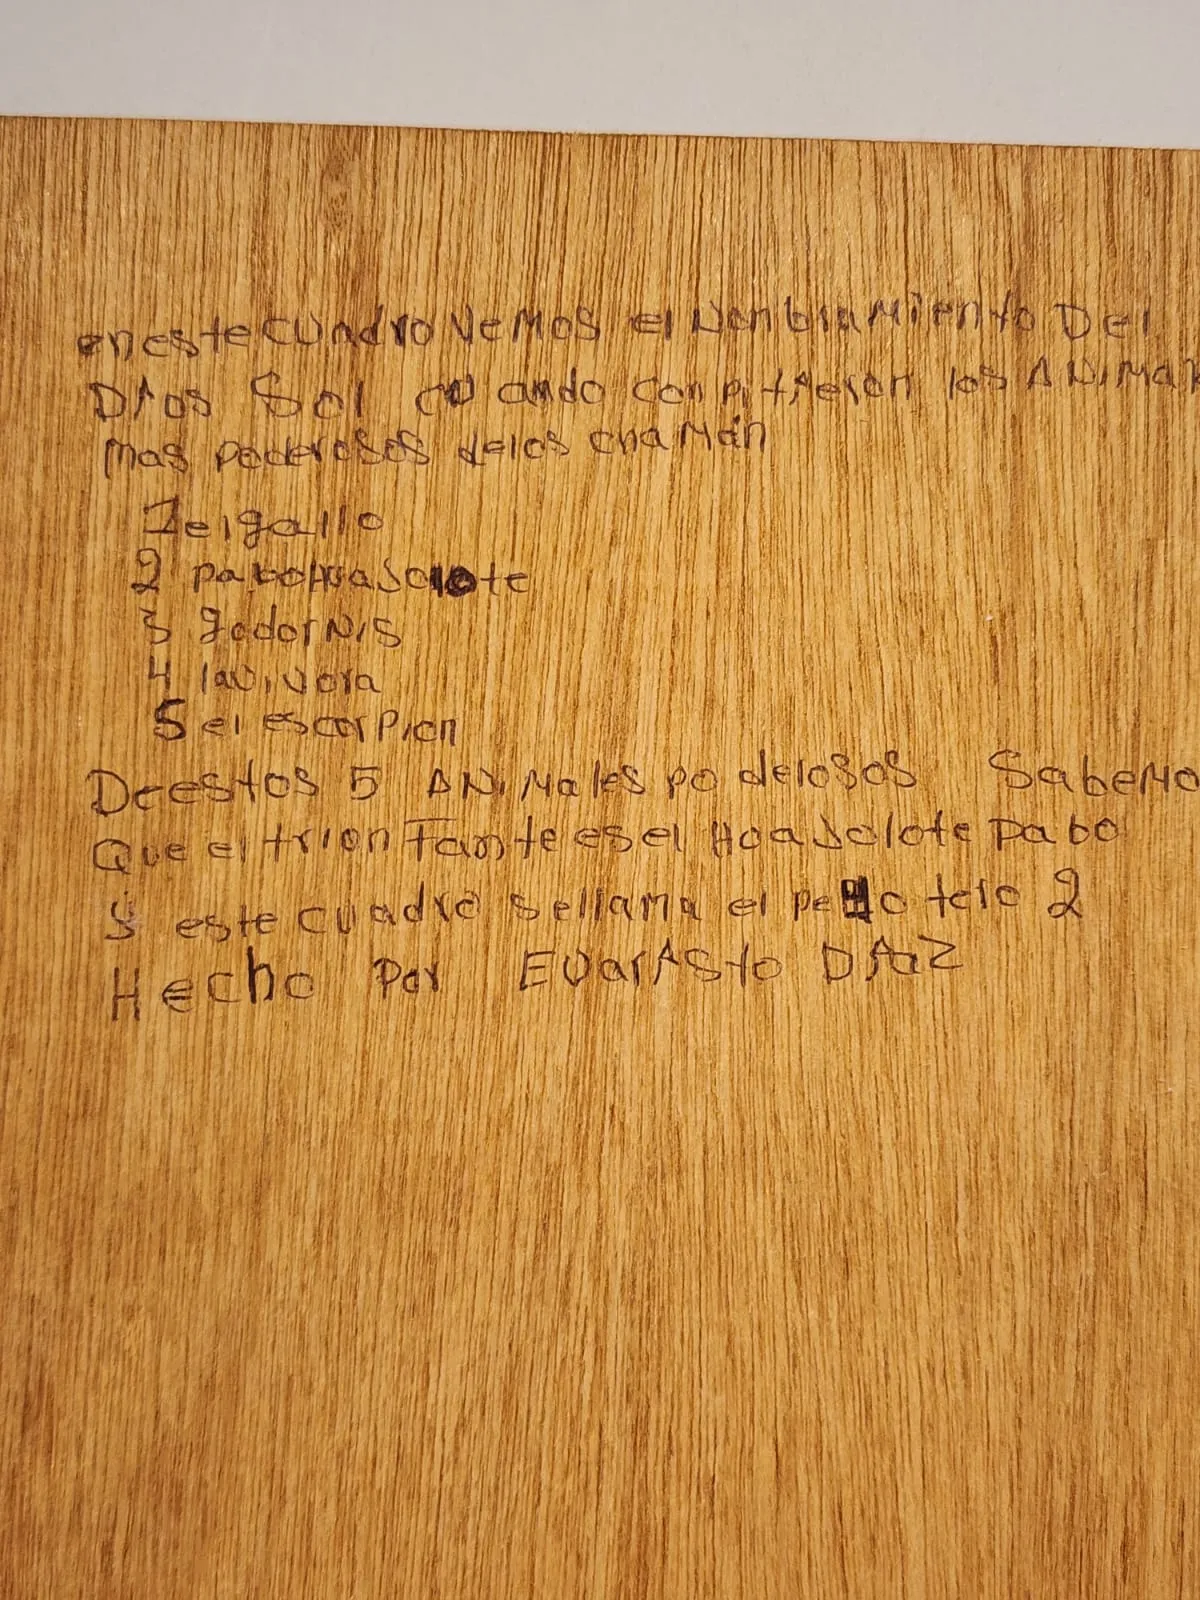 en este cuadro vemos el nonbramiento Del
Dios Sol cuando conpitieron los ANiMal
mas poderosos delos chaman
1 el gallo
2 pabo huasolote
3 godorNis
4 la vivora
5 el escorpion
De estos 5 ANiMales poderosos SabeMo
Que el trionfante es el Hoasolote pabo
y este cuadro se llama el pello telo 2
Hecho Por EvarAsto DiaZ